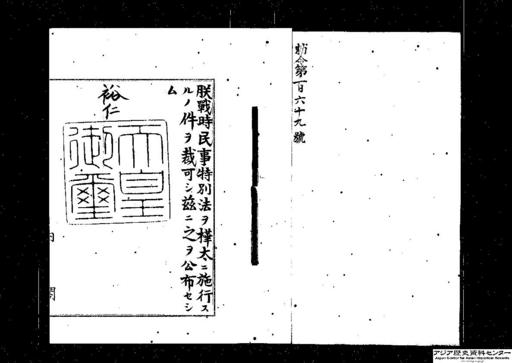 勅令第一百六十九號
朕戰時民事特別法ヲ樺太ニ施行ス
ルノ件ヲ裁可シ茲ニ之ヲ公布セシ
ム
裕仁
天皇
御璽
内閣
アジア歴史資料センター
Japan Center for Asian Historical Records